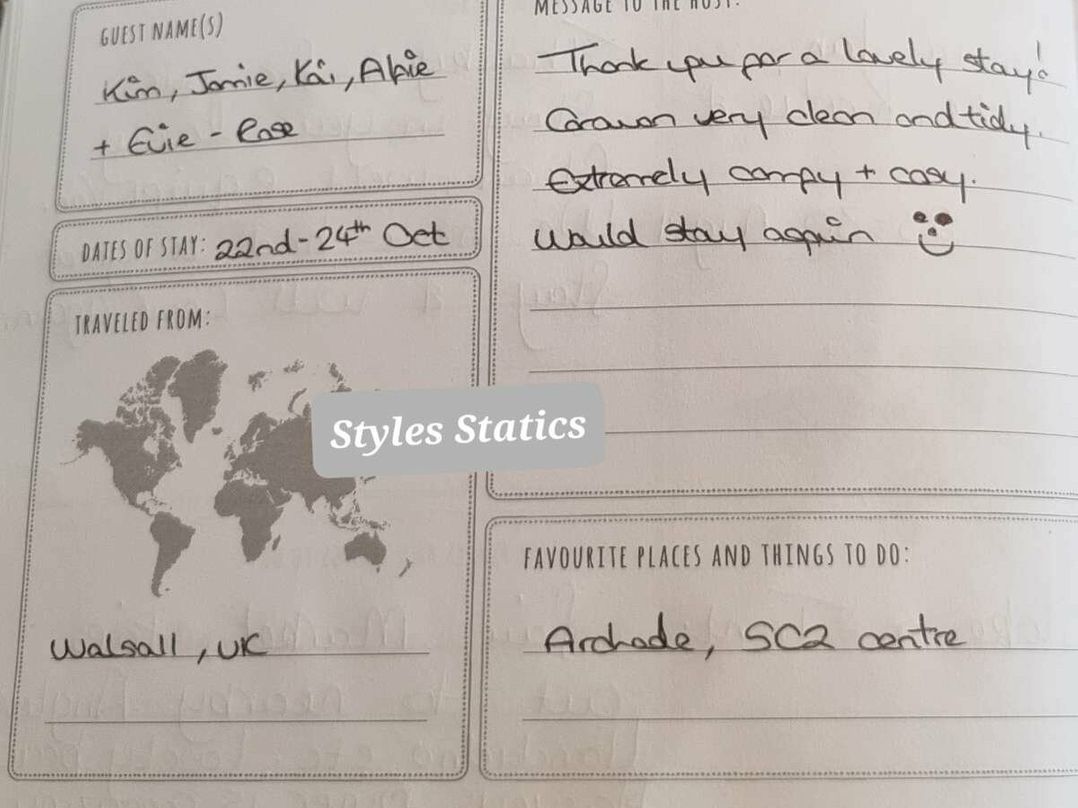 GUEST NAME(S)
Kim, Jamie, Kai, Alfie
+ Evie - Rose
DATES OF STAY: 22nd - 24th Oct
TRAVELED FROM:
Walsall, UK
MESSAGE TO THE HOST:
Thank you for a lovely stay!
Caravan very clean and tidy.
Extremely comfy + cosy.
Would stay again
Styles Statics
FAVOURITE PLACES AND THINGS TO DO:
Archade, SC2 centre